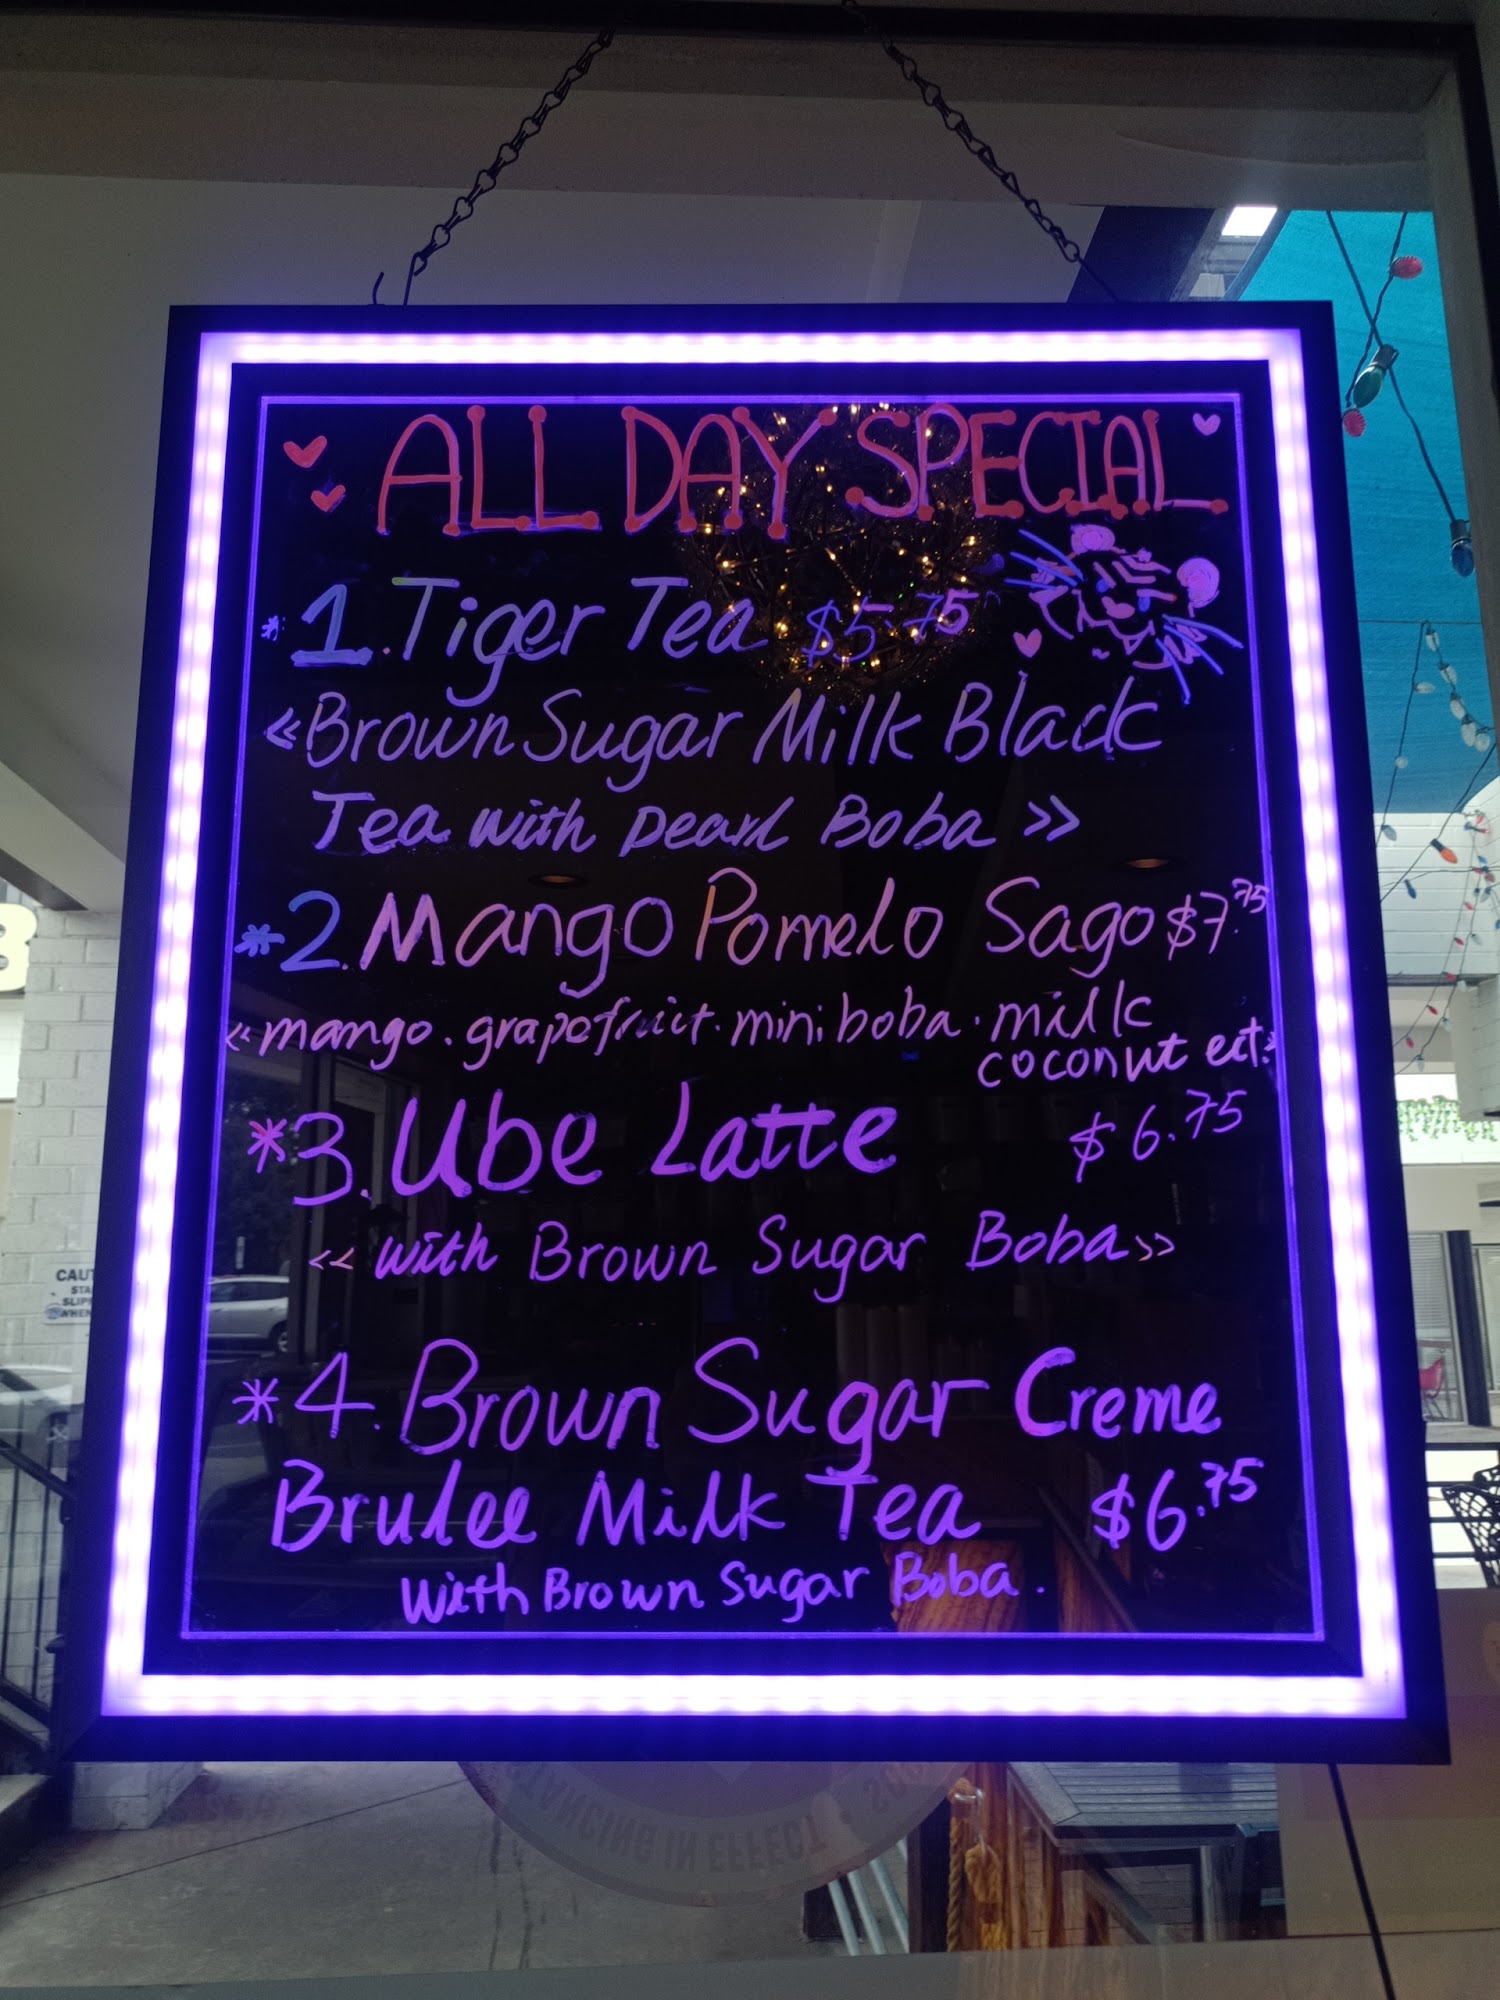 ALL DAY SPECIAL
*1. Tiger Tea $5.75
«Brown Sugar Milk Black
Tea with Pearl Boba»
*2. Mango Pomelo Sago $7.75
«mango. grapefruit. mini boba. milk
coconut ect.»
*3. Ube Latte $6.75
<< with Brown Sugar Boba >>
*4. Brown Sugar Creme
Brulee Milk Tea $6.75
with Brown Sugar Boba.
TANCING IN EFFECT